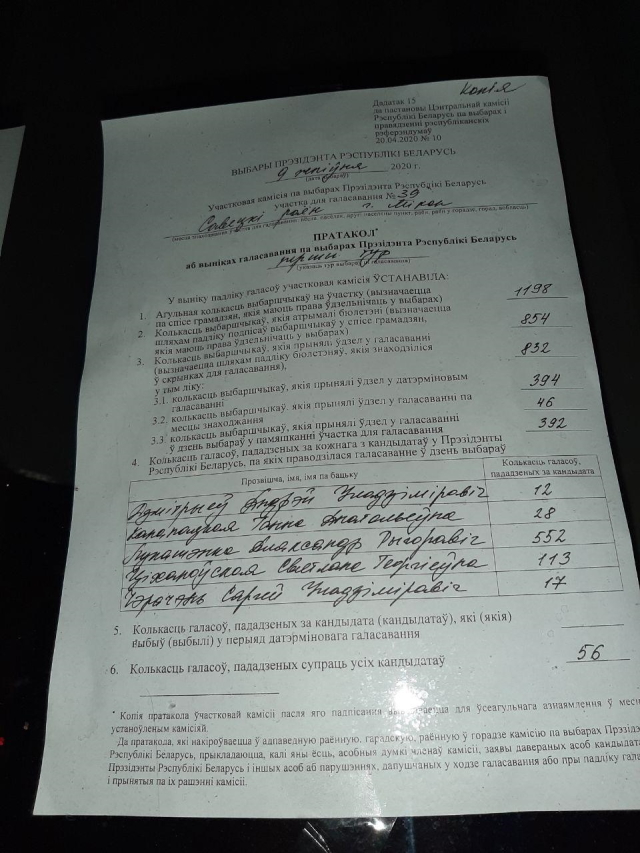 Копія
Дадатак 15
да пастановы Цэнтральнай камісіі
Рэспублікі Беларусь па выбарах і
правядзенні рэспубліканскіх
рэферэндумаў
20.04.2020 № 10
ВЫБАРЫ ПРЭЗІДЭНТА РЭСПУБЛІКІ БЕЛАРУСЬ
9 жніўня 2020 г.
(дата выбараў)
Участковая камісія па выбарах Прэзідэнта Рэспублікі Беларусь
участка для галасавання № 39
Савецкі раён г. Мінск
ПРАТАКОЛ*
аб выніках галасавання па выбарах Прэзідэнта Рэспублікі Беларусь
першы тур
У выніку падліку галасоў участковая камісія ЎСТАНАВІЛА:
1. Агульная колькасць выбаршчыкаў на ўчастку (вызначаецца
па спісе грамадзян, якія маюць права ўдзельнічаць у выбарах) 1198
2. Колькасць выбаршчыкаў, якія атрымалі бюлетэні (вызначаецца
шляхам падліку подпісаў выбаршчыкаў у спісе грамадзян,
якія маюць права ўдзельнічаць у выбарах) 854
3. Колькасць выбаршчыкаў, якія прынялі ўдзел у галасаванні
(вызначаецца шляхам падліку бюлетэняў, якія знаходзіліся
ў скрынках для галасавання), 832
у тым ліку:
3.1. колькасць выбаршчыкаў, якія прынялі ўдзел у датэрміновым
галасаванні 394
3.2. колькасць выбаршчыкаў, якія прынялі ўдзел у галасаванні па
месцы знаходжання 46
3.3. колькасць выбаршчыкаў, якія прынялі ўдзел у галасаванні
ў дзень выбараў у памяшканні ўчастка для галасавання 392
4. Колькасць галасоў, пададзеных за кожнага з кандыдатаў у Прэзідэнты
Рэспублікі Беларусь, па якіх праводзілася галасаванне ў дзень выбараў
Прозвішча, імя, імя па бацьку
Колькасць галасоў,
пададзеных за кандыдата
Дмітрыеў Андрэй Уладзіміравіч 12
Канапацкая Ганна Анатольеўна 28
Лукашэнка Аляксандр Рыгоравіч 552
Ціханоўская Святлана Георгіеўна 113
Чэрачэнь Сяргей Уладзіміравіч 17
5. Колькасць галасоў, пададзеных за кандыдата (кандыдатаў), які (якія)
выбыў (выбылі) у перыяд датэрміновага галасавання
6. Колькасць галасоў, пададзеных супраць усіх кандыдатаў 56
* Копія пратакола ўчастковай камісіі пасля яго падпісання вывешваецца для ўсеагульнага азнаямлення ў месцы,
устаноўленым камісіяй.
Да пратакола, які накіроўваецца ў адпаведную раённую, гарадскую, раённую ў горадзе камісію па выбарах Прэзідэнта
Рэспублікі Беларусь, прыкладаюцца, калі яны ёсць, асобныя думкі членаў камісіі, заявы давераных асоб кандыдатаў
Прэзідэнты Рэспублікі Беларусь і іншых асоб аб парушэннях, дапушчаных у ходзе галасавання або пры падліку гала
і прынятыя па іх рашэнні камісіі.